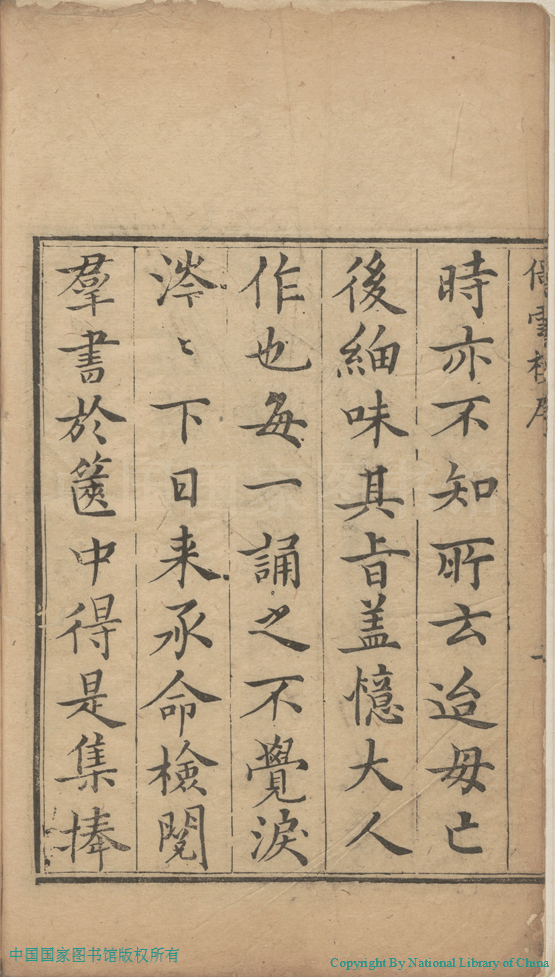 時亦不知所去迨毋亡
後細味其旨盖憶大人
作也每一誦之不覺淚
涔〻下日来承命檢閱
羣書於篋中得是集捧
中国国家图书馆版权所有
Copyright By National Library of China